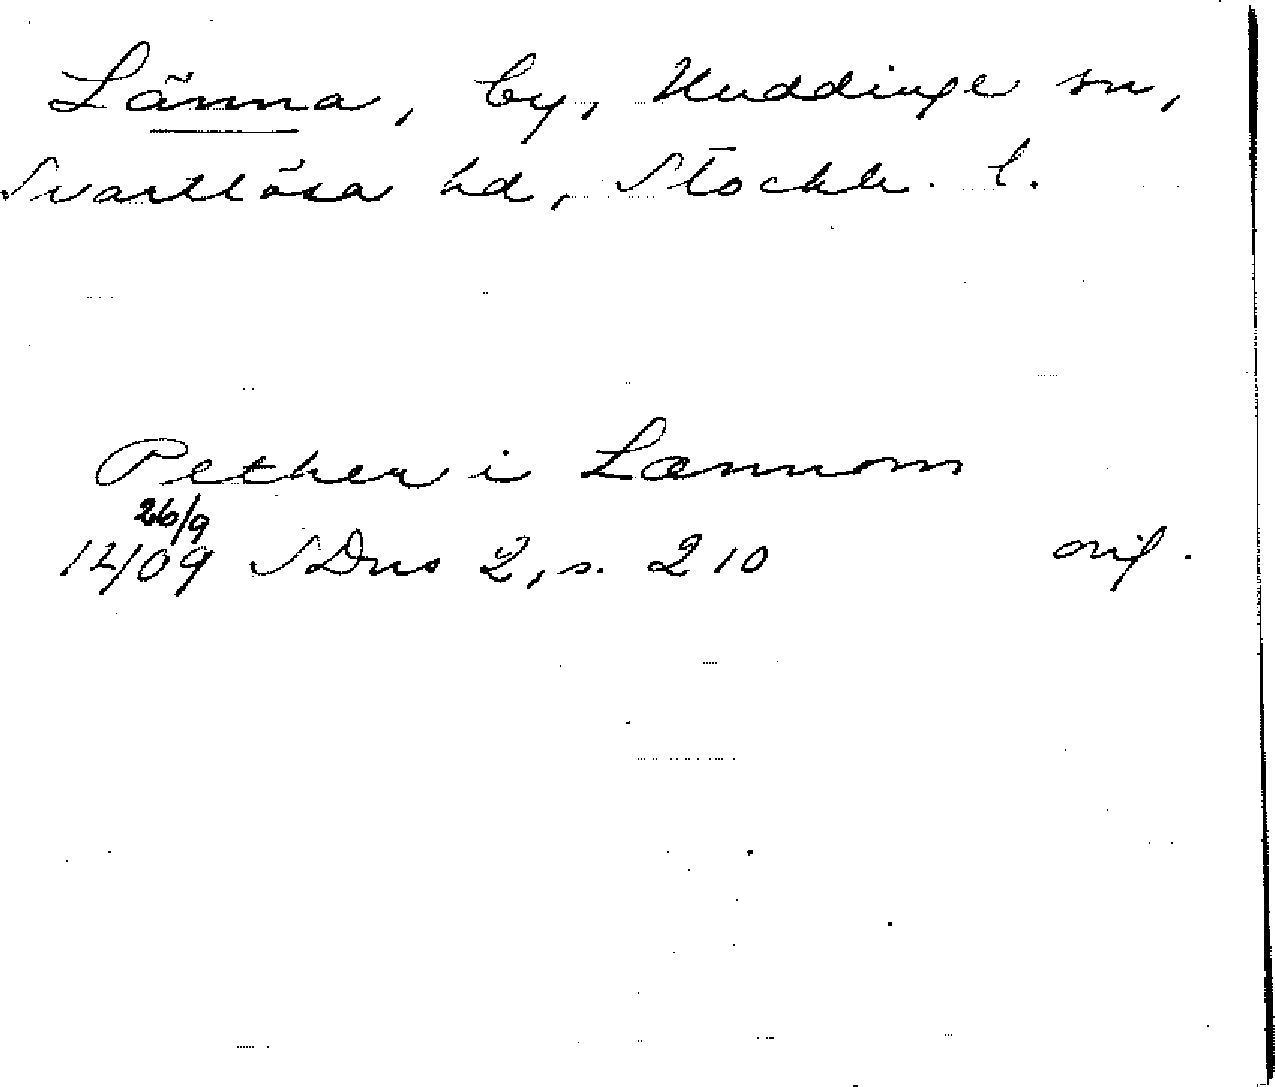 Länna, by, Huddinge sn,
Svartlösa hd, Stockh. l.
Pether i Lænnom
26/9
12/09 SDns 2, s. 210 orig.